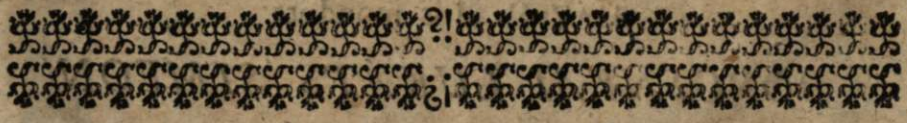 ?!
¿¡